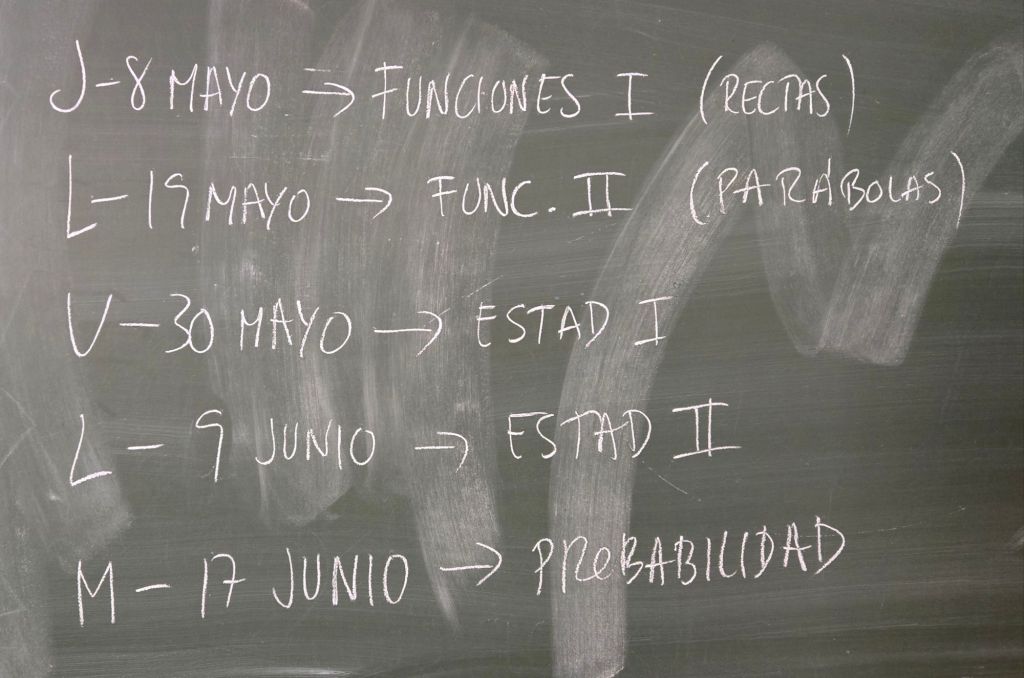 J-8 MAYO → FUNCIONES I (RECTAS)
L-19 MAYO → FUNC. II (PARÁBOLAS)
V-30 MAYO → ESTAD I
L-9 JUNIO → ESTAD II
M-17 JUNIO → PROBABILIDAD